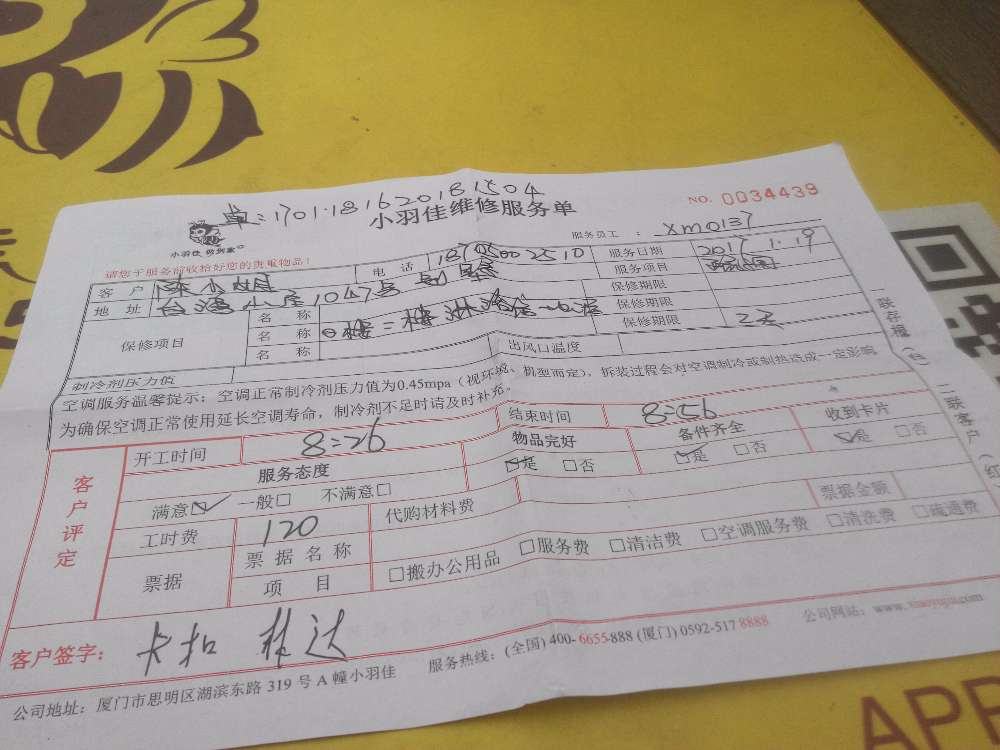 单:1701181620181504
NO. 0034439
小羽佳维修服务单
小羽佳
服务员工 : XM0137
请您于服务前收拾好您的贵重物品!
客户 电话 服务日期 2017.1.19
地址 台湾小屋1047号 服务项目
保修项目 名称 保修期限
名称 保修期限
名称 保修期限
制冷剂压力值 出风口温度
空调服务温馨提示:空调正常制冷剂压力值为0.45mpa(视环境、机型而定),拆装过程会对空调制冷或制热造成一定影响
为确保空调正常使用延长空调寿命,制冷剂不足时请及时补充。
客户评定
开工时间 8:26 结束时间 8:56
服务态度 物品完好 备件齐全 收到卡片
满意☑ 一般□ 不满意□ ☑是 □否 ☑是 □否 ☑是 □否
工时费 120 代购材料费 票据金额
票据 票据名称
项目 □搬办公用品 □服务费 □清洁费 □空调服务费 □清洗费 □疏通费
客户签字: 卡扣 林达
公司地址:厦门市思明区湖滨东路 319 号 A 幢小羽佳 服务热线:(全国)400-6655-888 (厦门) 0592-517 8888 公司网站:www.xiaoyujia.com
一联存根(白) 二联客户(红)
APP